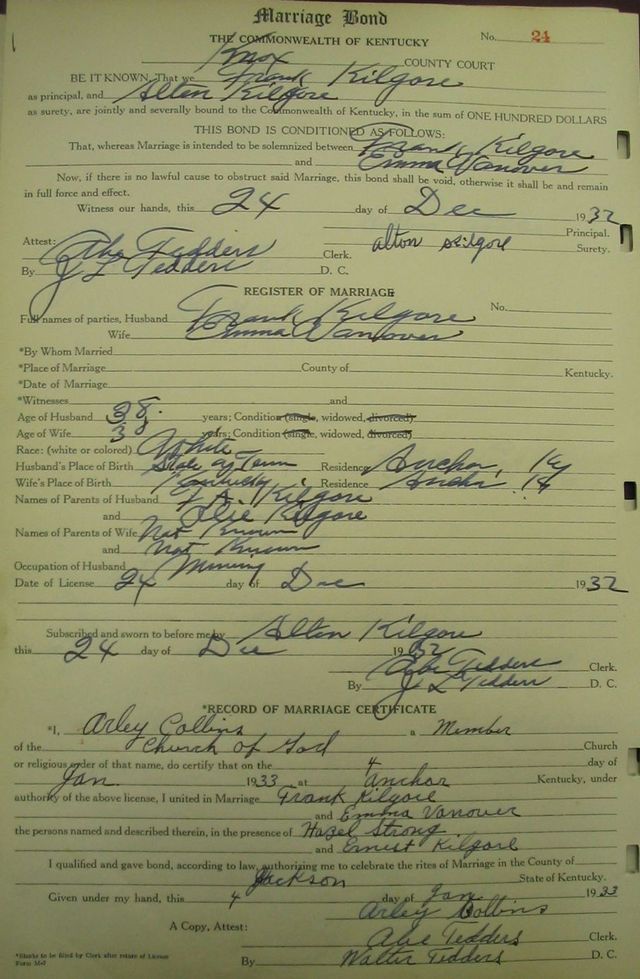 Marriage Bond
THE COMMONWEALTH OF KENTUCKY No. 24
Knox COUNTY COURT
BE IT KNOWN, That we Frank Kilgore
as principal, and Alton Kilgore
as surety, are jointly and severally bound to the Commonwealth of Kentucky, in the sum of ONE HUNDRED DOLLARS
THIS BOND IS CONDITIONED AS FOLLOWS:
That, whereas Marriage is intended to be solemnized between Frank Kilgore
and Emma Vanover
Now, if there is no lawful cause to obstruct said Marriage, this bond shall be void, otherwise it shall be and remain
in full force and effect.
Witness our hands, this 24 day of Dec 1932
Principal.
Attest: Abe Tedders Clerk. alton Kilgore Surety.
By J L Tedders D. C.
REGISTER OF MARRIAGE
Full names of parties, Husband Frank Kilgore No.
Wife Emma Vanover
*By Whom Married
*Place of Marriage County of Kentucky.
*Date of Marriage
*Witnesses and
Age of Husband 38 years; Condition (single, widowed, divorced)
Age of Wife years; Condition (single, widowed, divorced)
Race: (white or colored) White
Husband's Place of Birth State of Tenn Residence Anchor, Ky
Wife's Place of Birth Kentucky Residence Anchor Ky
Names of Parents of Husband Kilgore
and Kilgore
Names of Parents of Wife Not Known
and Not Known
Occupation of Husband Mining
Date of License 24 day of Dec 1932
Subscribed and sworn to before me by Alton Kilgore
this 24 day of Dec 1932
Abe Tedders Clerk.
By J L Tedders D. C.
*RECORD OF MARRIAGE CERTIFICATE
*I, Arley Collins a Member
of the Church of God Church
or religious order of that name, do certify that on the 4 day of
Jan 1933 at Anchor Kentucky, under
authority of the above license, I united in Marriage Frank Kilgore
and Emma Vanover
the persons named and described therein, in the presence of Hazel Strong
and Ernest Kilgore
I qualified and gave bond, according to law, authorizing me to celebrate the rites of Marriage in the County of
Jackson State of Kentucky.
Given under my hand, this 4 day of Jan 1933
Arley Collins
A Copy, Attest: Abe Tedders Clerk.
By Walter Tedders D. C.
*Blanks to be filed by Clerk after return of License
Form M-2